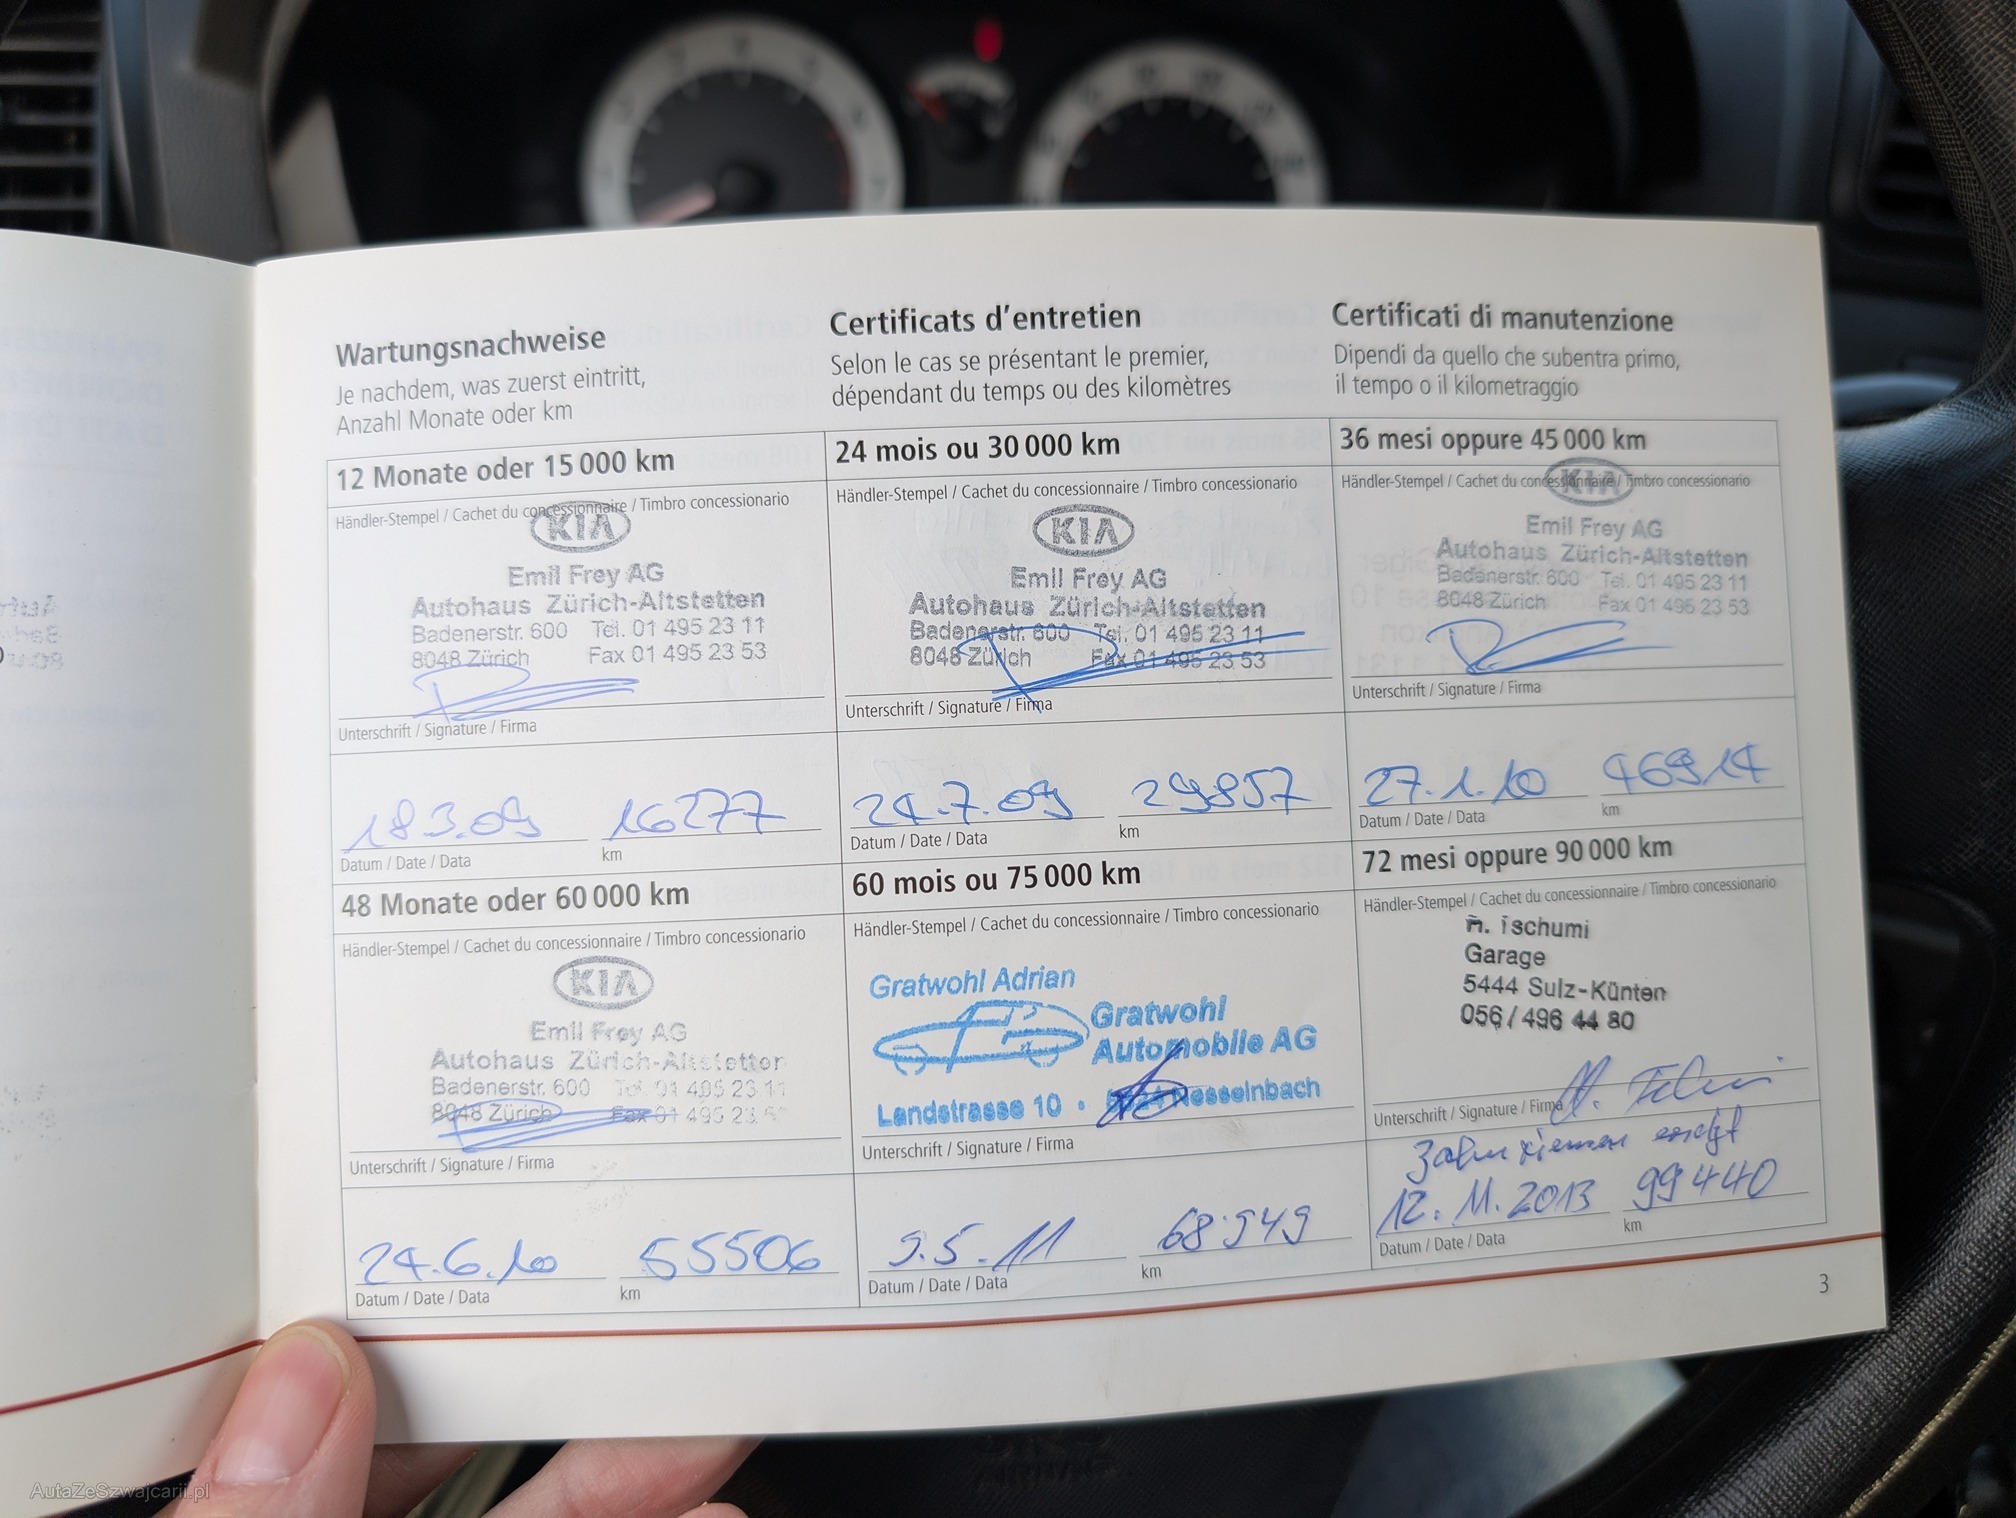 Wartungsnachweise
Je nachdem, was zuerst eintritt,
Anzahl Monate oder km
Certificats d'entretien
Selon le cas se présentant le premier,
dépendant du temps ou des kilomètres
Certificati di manutenzione
Dipendi da quello che subentra primo,
il tempo o il kilometraggio
12 Monate oder 15 000 km
Händler-Stempel / Cachet du concessionnaire / Timbro concessionario
KIA
Emil Frey AG
Autohaus Zürich-Altstetten
Badenerstr. 600 Tel. 01 495 23 11
8048 Zürich Fax 01 495 23 53
Unterschrift / Signature / Firma
18.3.09 16277
Datum / Date / Data km
24 mois ou 30 000 km
Händler-Stempel / Cachet du concessionnaire / Timbro concessionario
KIA
Emil Frey AG
Autohaus Zürich-Altstetten
Badenerstr. 600 Tel. 01 495 23 11
8048 Zürich Fax 01 495 23 53
Unterschrift / Signature / Firma
24.7.09 29857
Datum / Date / Data km
36 mesi oppure 45 000 km
Händler-Stempel / Cachet du concessionnaire / Timbro concessionario
KIA
Emil Frey AG
Autohaus Zürich-Altstetten
Badenerstr. 600 Tel. 01 495 23 11
8048 Zürich Fax 01 495 23 53
Unterschrift / Signature / Firma
27.1.10 46914
Datum / Date / Data km
48 Monate oder 60 000 km
Händler-Stempel / Cachet du concessionnaire / Timbro concessionario
KIA
Emil Frey AG
Autohaus Zürich-Altstetten
Badenerstr. 600 Tel. 01 495 23 11
8048 Zürich Fax 01 495 23
Unterschrift / Signature / Firma
24.6.10 55506
Datum / Date / Data km
60 mois ou 75 000 km
Händler-Stempel / Cachet du concessionnaire / Timbro concessionario
Gratwohl Adrian
Gratwohl
Automobile AG
Landstrasse 10 · Nesselnbach
Unterschrift / Signature / Firma
9.5.11 68'949
Datum / Date / Data km
72 mesi oppure 90 000 km
Händler-Stempel / Cachet du concessionnaire / Timbro concessionario
Tschumi
Garage
5444 Sulz-Künten
056/496 44 80
Unterschrift / Signature / Firma
Zahnriemen ersetzt
12.11.2013 99440
Datum / Date / Data km
3
AutaZeSzwajcarii.pl